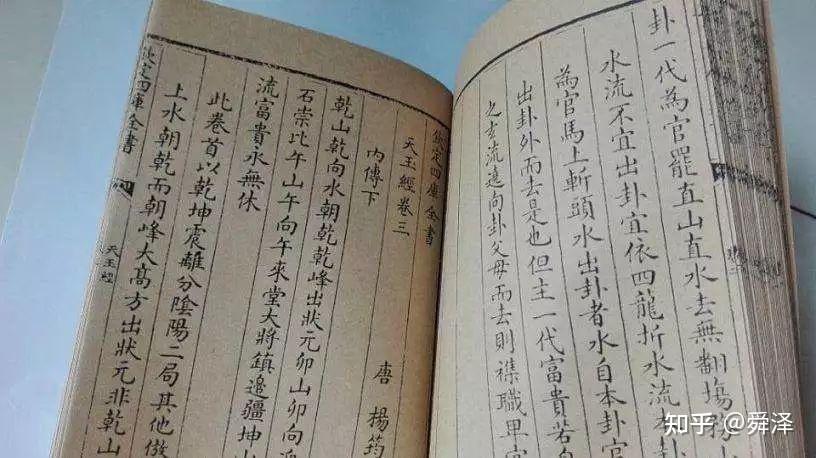 卦一代為官罷直山直水去無翻塲務小
水流不宜出卦宜依四龍折水流本
為官馬上斬頭水出卦者水自本卦官
出卦外而去是也但主一代富貴若自
之玄流遠向卦父母而去則襍職卑官
欽定四庫全書
天玉經卷三
內傳下
唐 楊筠
乾山乾向水朝乾乾峰出狀元卯山卯向迎
石崇比午山午向午來堂大將鎮邊疆坤山
流富貴永無休
此卷首以乾坤震離分陰陽二局其他倣
上水朝乾而朝峰大高方出狀元非乾山
欽定四庫全書
天玉經
知乎 @舜泽